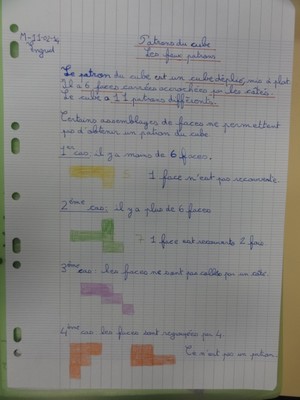 M-11-02-14
Ingrid
Patrons du cube
Les faux patrons
Le patron du cube est un cube déplié, mis à plat
Il a 6 faces carrées accrochées par les côtés
Le cube a 11 patrons différents.
Certains assemblages de faces ne permettent
pas d'obtenir un patron du cube
1er cas: il y a moins de 6 faces.
5
1 face n'est pas recouverte
2ème cas: il y a plus de 6 faces
7
1 face est recouverte 2 fois
3ème cas: les faces ne sont pas collées par un côté.
4ème cas les faces sont regroupées par 4
Ce n'est pas un patron.